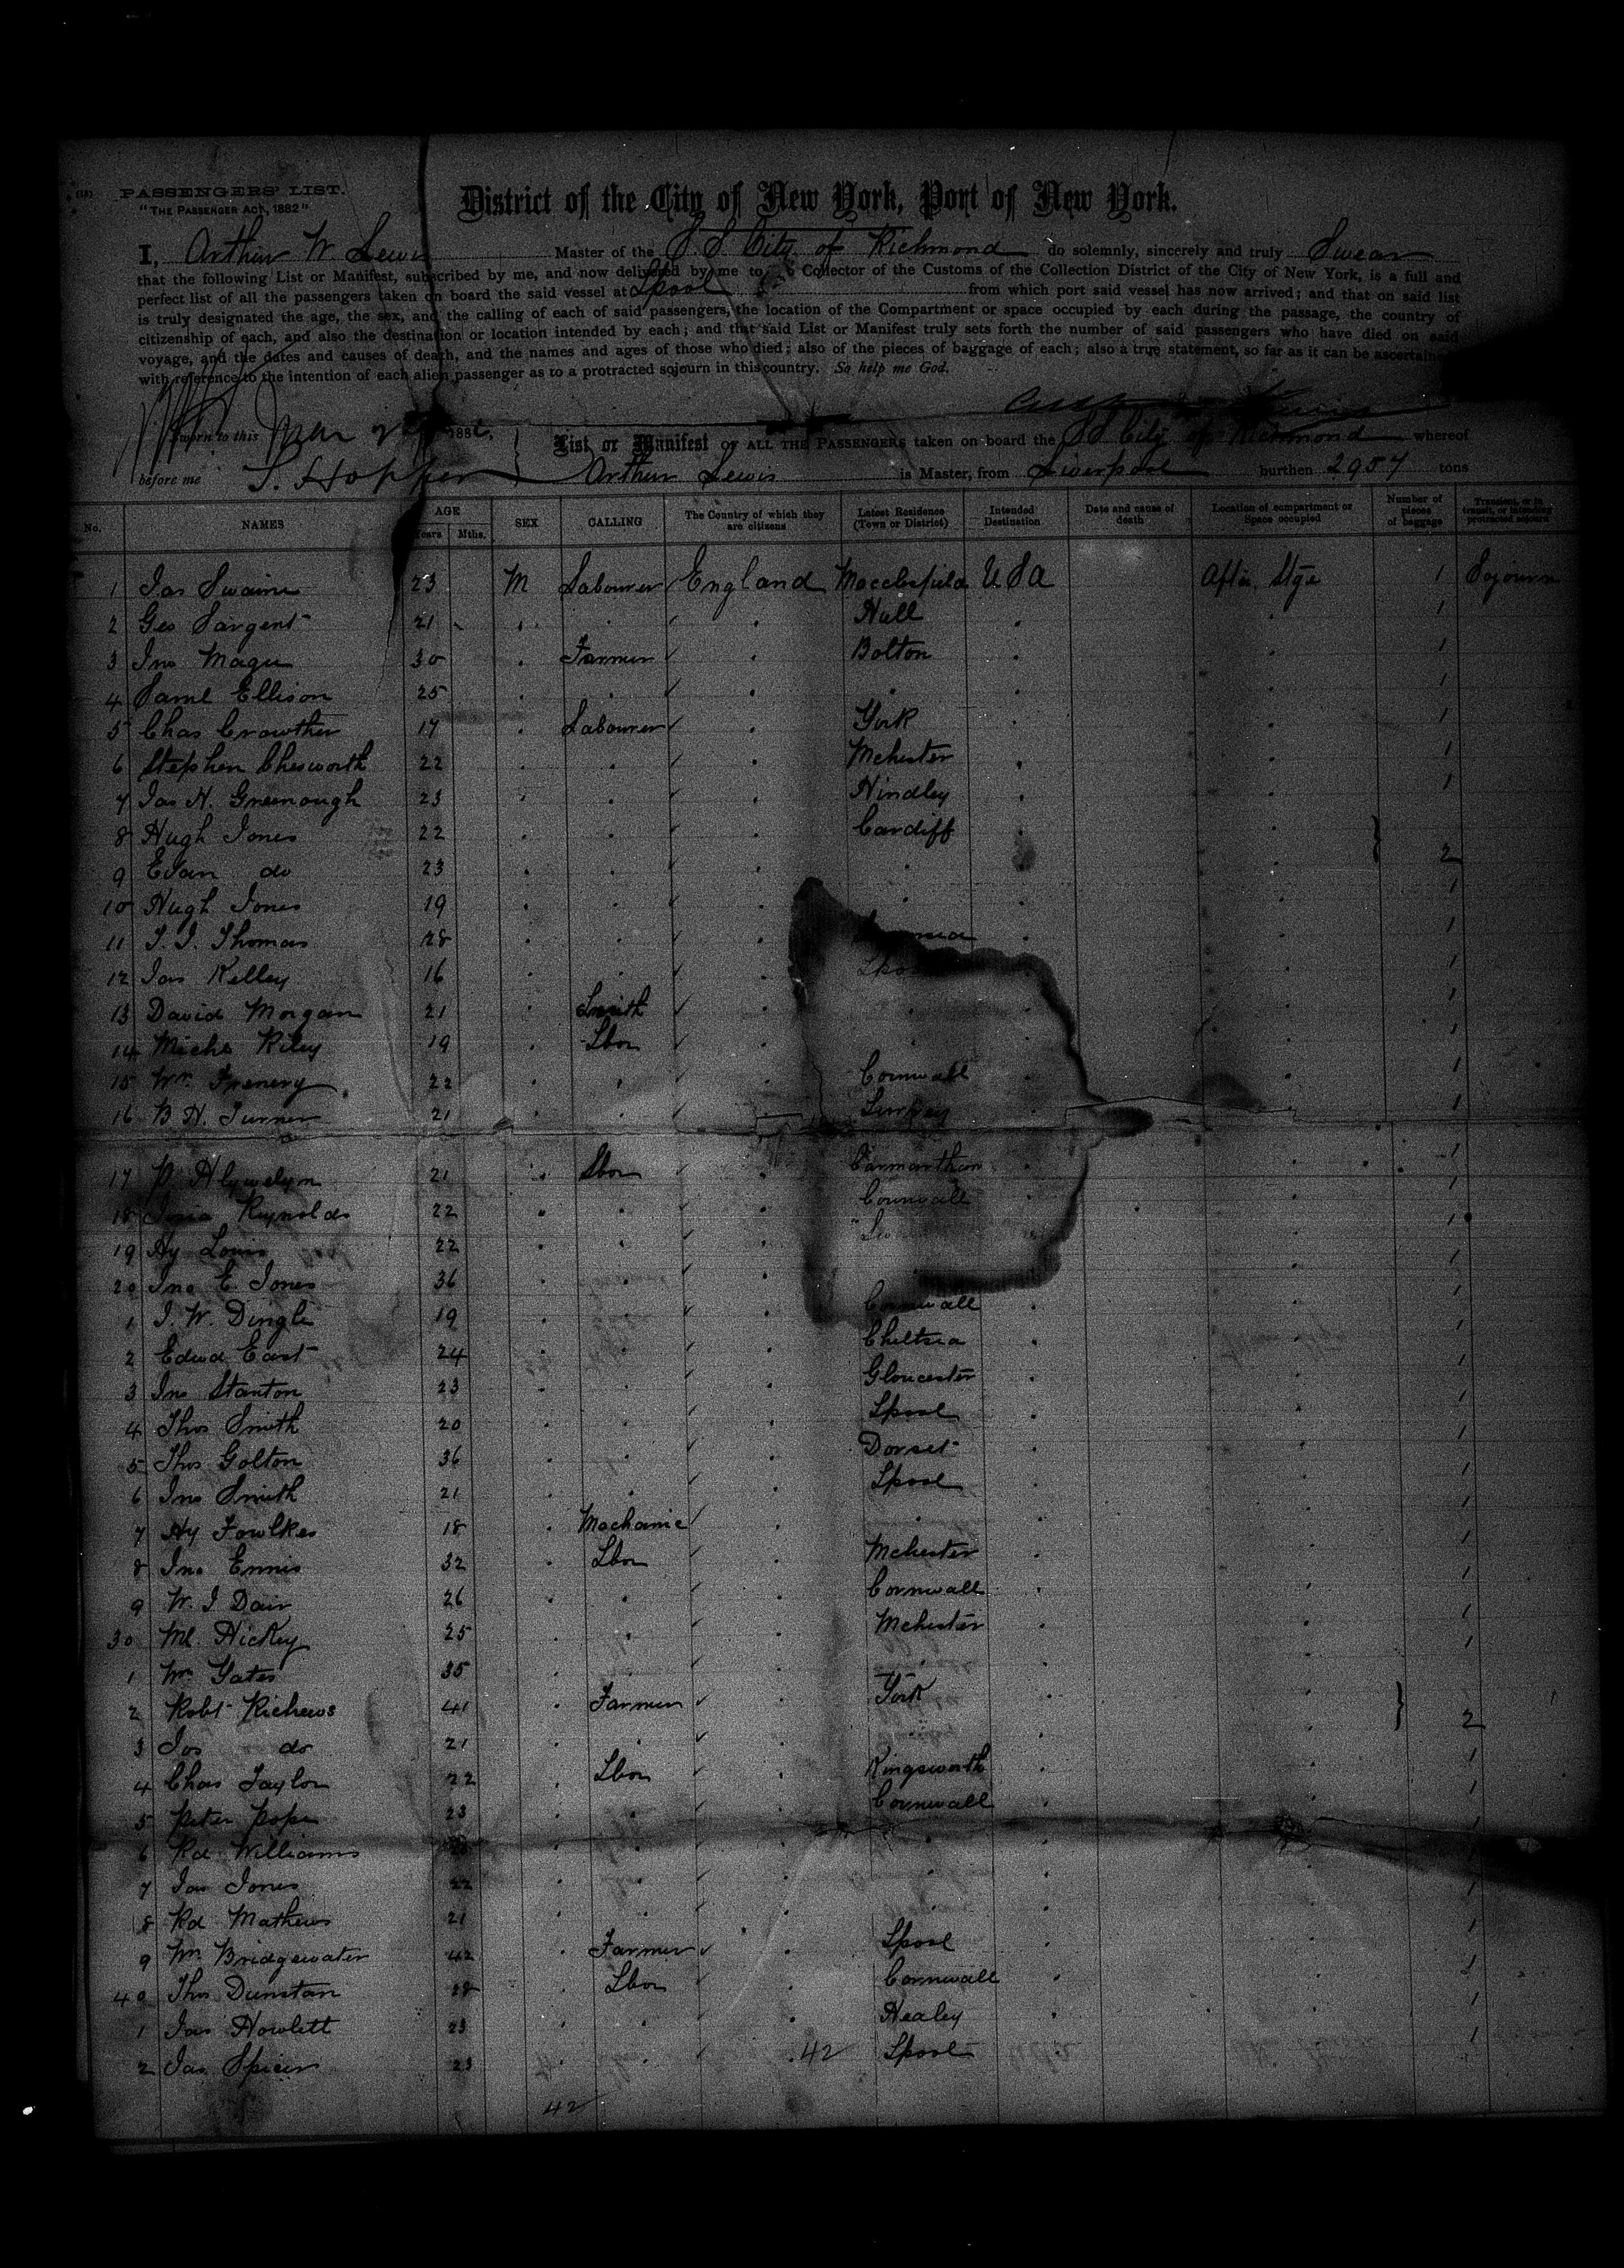 PASSENGERS' LIST.
"THE PASSENGER ACT, 1882"
District of the City of New York, Port of New York.
I, Arthur W Lewis Master of the S S City of Richmond do solemnly, sincerely and truly Swear
that the following List or Manifest, subscribed by me, and now delivered by me to Collector of the Customs of the Collection District of the City of New York, is a full and
perfect list of all the passengers taken on board the said vessel at Lpool from which port said vessel has now arrived; and that on said list
is truly designated the age, the sex, and the calling of each of said passengers, the location of the Compartment or space occupied by each during the passage, the country of
citizenship of each, and also the destination or location intended by each; and that said List or Manifest truly sets forth the number of said passengers who have died on said
voyage, and the dates and causes of death, and the names and ages of those who died; also of the pieces of baggage of each; also a true statement, so far as it can be
with reference to the intention of each alien passenger as to a protracted sojourn in this country. So help me God.
Sworn to this 188
List or Manifest OF ALL THE PASSENGERS taken on board the S S City of Richmond whereof
before me S. Hopper Arthur Lewis is Master, from Liverpool burthen 2957 tons
No. NAMES AGE Years Mths. SEX CALLING The Country of which they are citizens Latest Residence (Town or District) Intended Destination Date and cause of death Location of compartment or Space occupied Number of pieces of baggage Transient, or in transit, or intending protracted sojourn
1 Jas Swaine 23 M Labourer England Macclesfield U S A Aftr Stge 1 Sojourn
2 Geo Sargent 21 Hull 1
3 Jno Magu 30 Farmer Bolton 1
4 Saml Ellison 25 1
5 Chas Crowther 17 Labourer York 1
6 Stephen Chesworth 22 Mchester 1
7 Jas H. Greenough 23 Hindley 1
8 Hugh Jones 22 Cardiff
9 Evan do 23 2
10 Hugh Jones 19 1
11 T. J. Thomas 28 1
12 Jas Kelley 16 1
13 David Morgan 21 Smith 1
14 Michl Riley 19 Lbor 1
15 Wm 22 Cornwall 1
16 B H. Turner 21 1
17 21 Lbor Carmarthen 1
18 Reynolds 22 Cornwall 1
19 Hy Louis 22 1
20 Jno E Jones 36 1
1 J. W. Dingle 19 Cornwall 1
2 Edwd East 24 Cheltsea 1
3 Jno Stanton 23 Gloucester 1
4 Thos Smith 20 Lpool 1
5 Thos Golton 36 Dorset 1
6 Jno Smith 21 Lpool 1
7 Hy Fowlkes 18 Mechanic 1
8 Jno Ennis 32 Lbor Mchester 1
9 W. J Dair 26 Cornwall 1
30 Ml. Hickey 25 Mchester 1
1 Wm Yates 35 1
2 Robt Richews 41 Farmer York
3 Jos do 21 2
4 Chas Taylor 22 Lbor Kingsworth 1
5 Peter Pope 23 Cornwall 1
6 Rd Williams 1
7 Jas Jones 22 1
8 Rd Mathews 21 1
9 Wm Bridgewater 42 Farmer Lpool 1
40 Thos Dunstan 28 Lbor Cornwall 1
1 Jas Howlett 23 Healey 1
2 Jas Spicer 23 42 Lpool 1
42